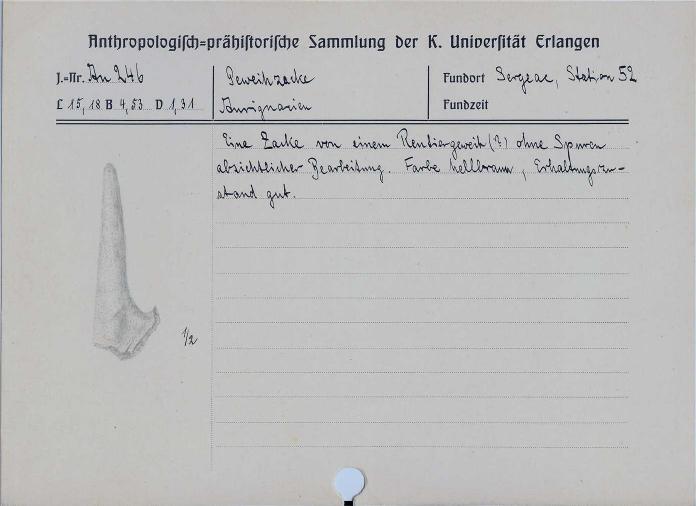 Anthropologiſch=prähiſtoriſche Sammlung der K. Univerſität Erlangen
J.=Nr. An 246
L 15,18 B 4,53 D 1,31
Geweihzacke
Aurignacien
Fundort Sergeac, Station 52
Fundzeit
Eine Zacke von einem Rentiergeweih (?) ohne Spuren
absichtlicher Bearbeitung. Farbe hellbraun, Erhaltungszu-
stand gut.
1/2